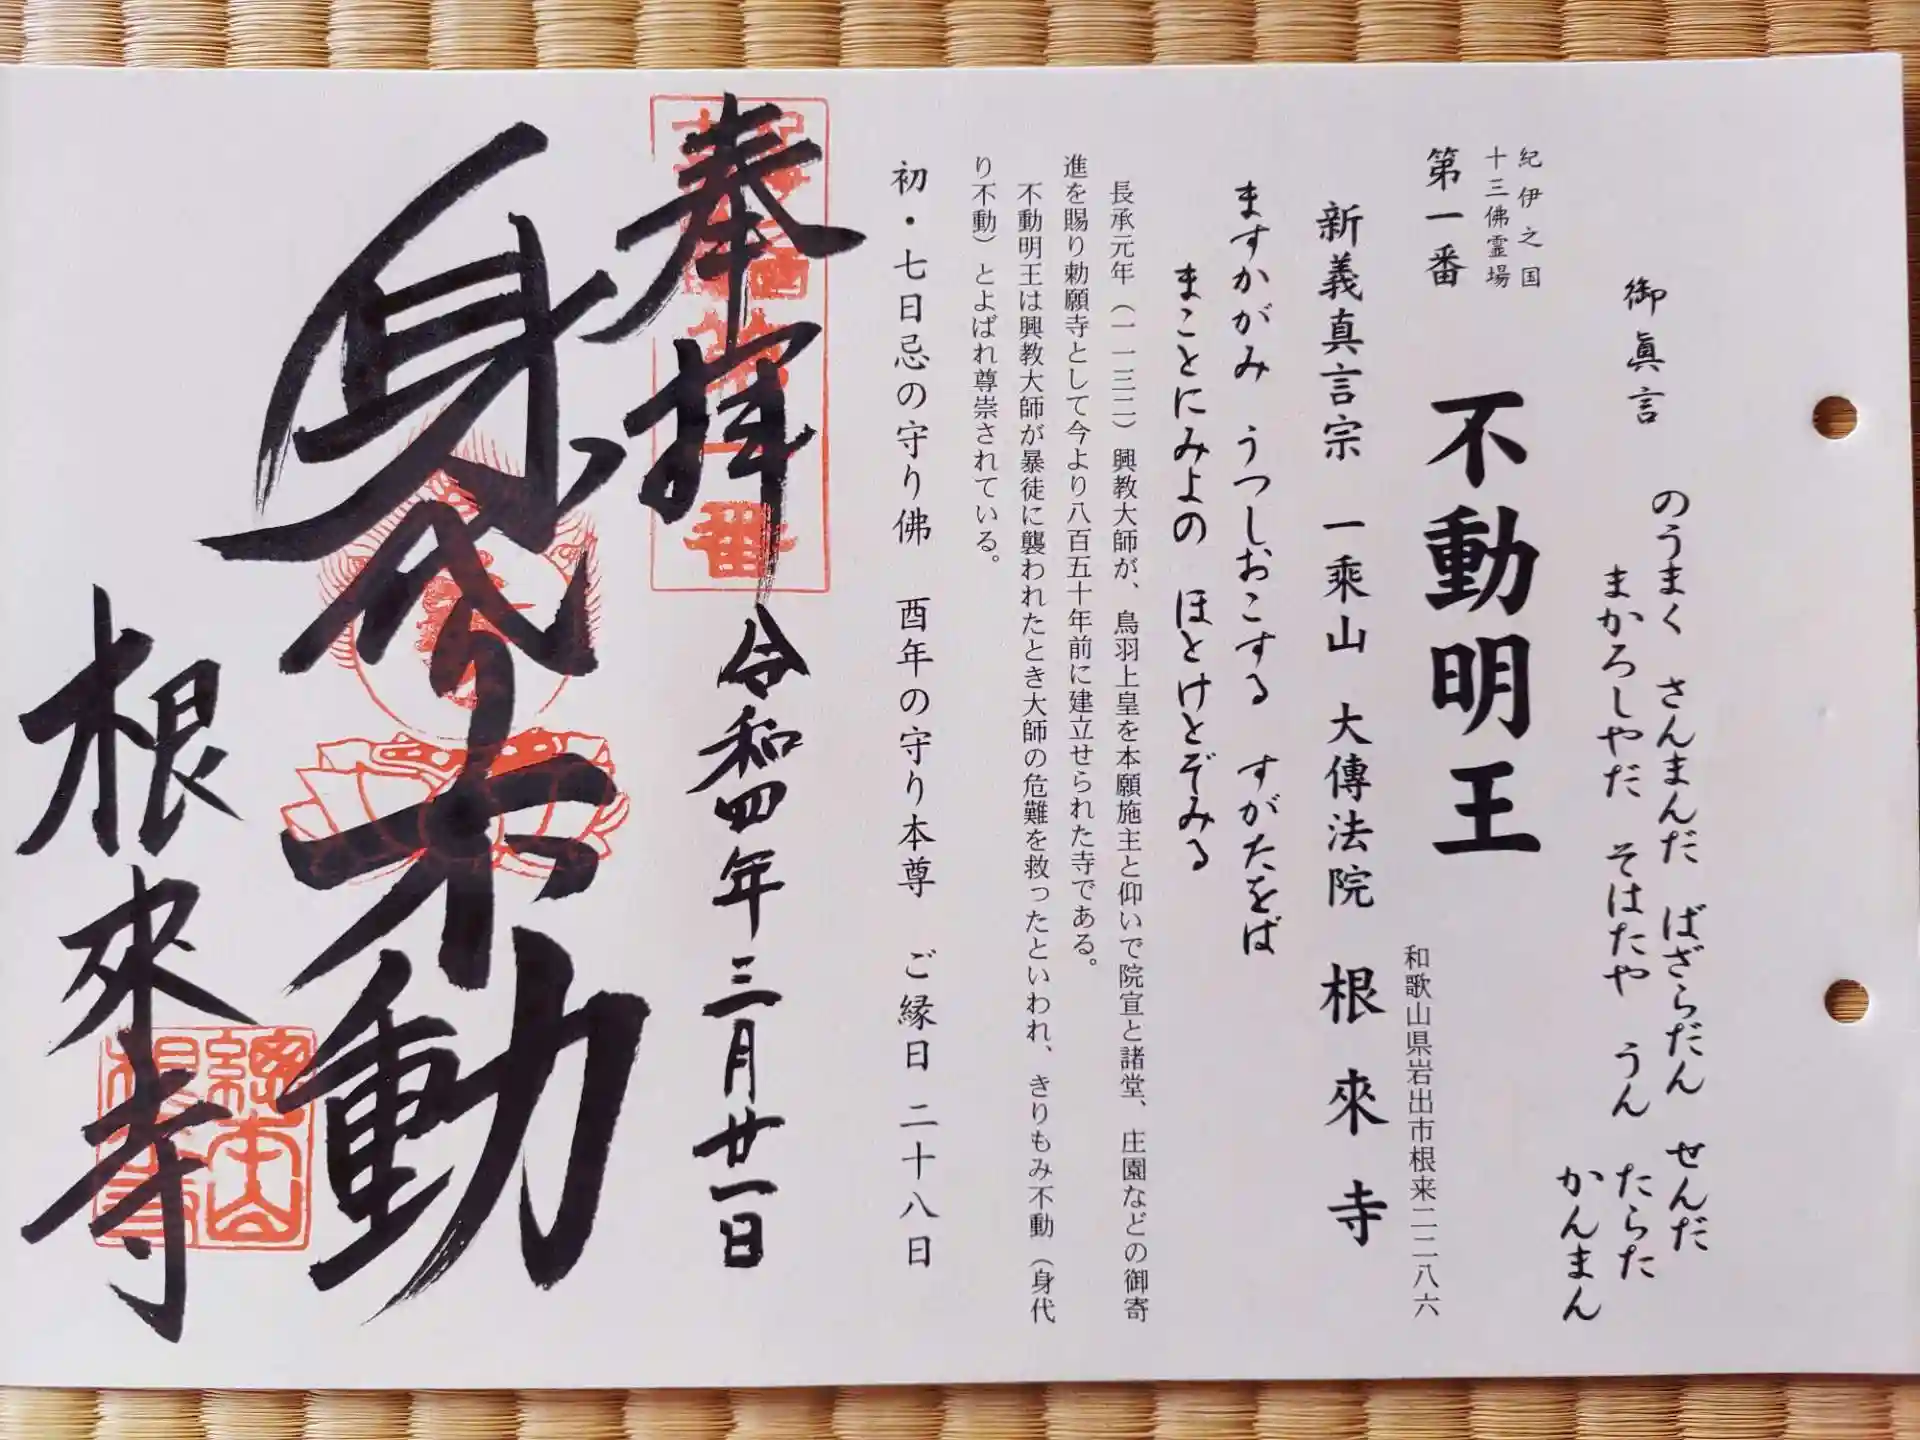 御眞言
のうまく さんまんだ ばざらだん せんだ
まかろしやだ そはたや うん たらた
かんまん
紀伊之国
十三佛霊場
第一番 不動明王
和歌山県岩出市根来二二八六
新義真言宗 一乘山 大傳法院 根來寺
ますかがみ うつしおこする すがたをば
まことにみよの ほとけとぞみる
長承元年（一一三二）興教大師が、鳥羽上皇を本願施主と仰いで院宣と諸堂、庄園などの御寄
進を賜り勅願寺として今より八百五十年前に建立せられた寺である。
不動明王は興教大師が暴徒に襲われたとき大師の危難を救ったといわれ、きりもみ不動（身代
り不動）とよばれ尊崇されている。
初・七日忌の守り佛 酉年の守り本尊 ご縁日 二十八日
奉拝
番
令和四年三月廿一日
身代不動
根來寺
總本山
根來寺